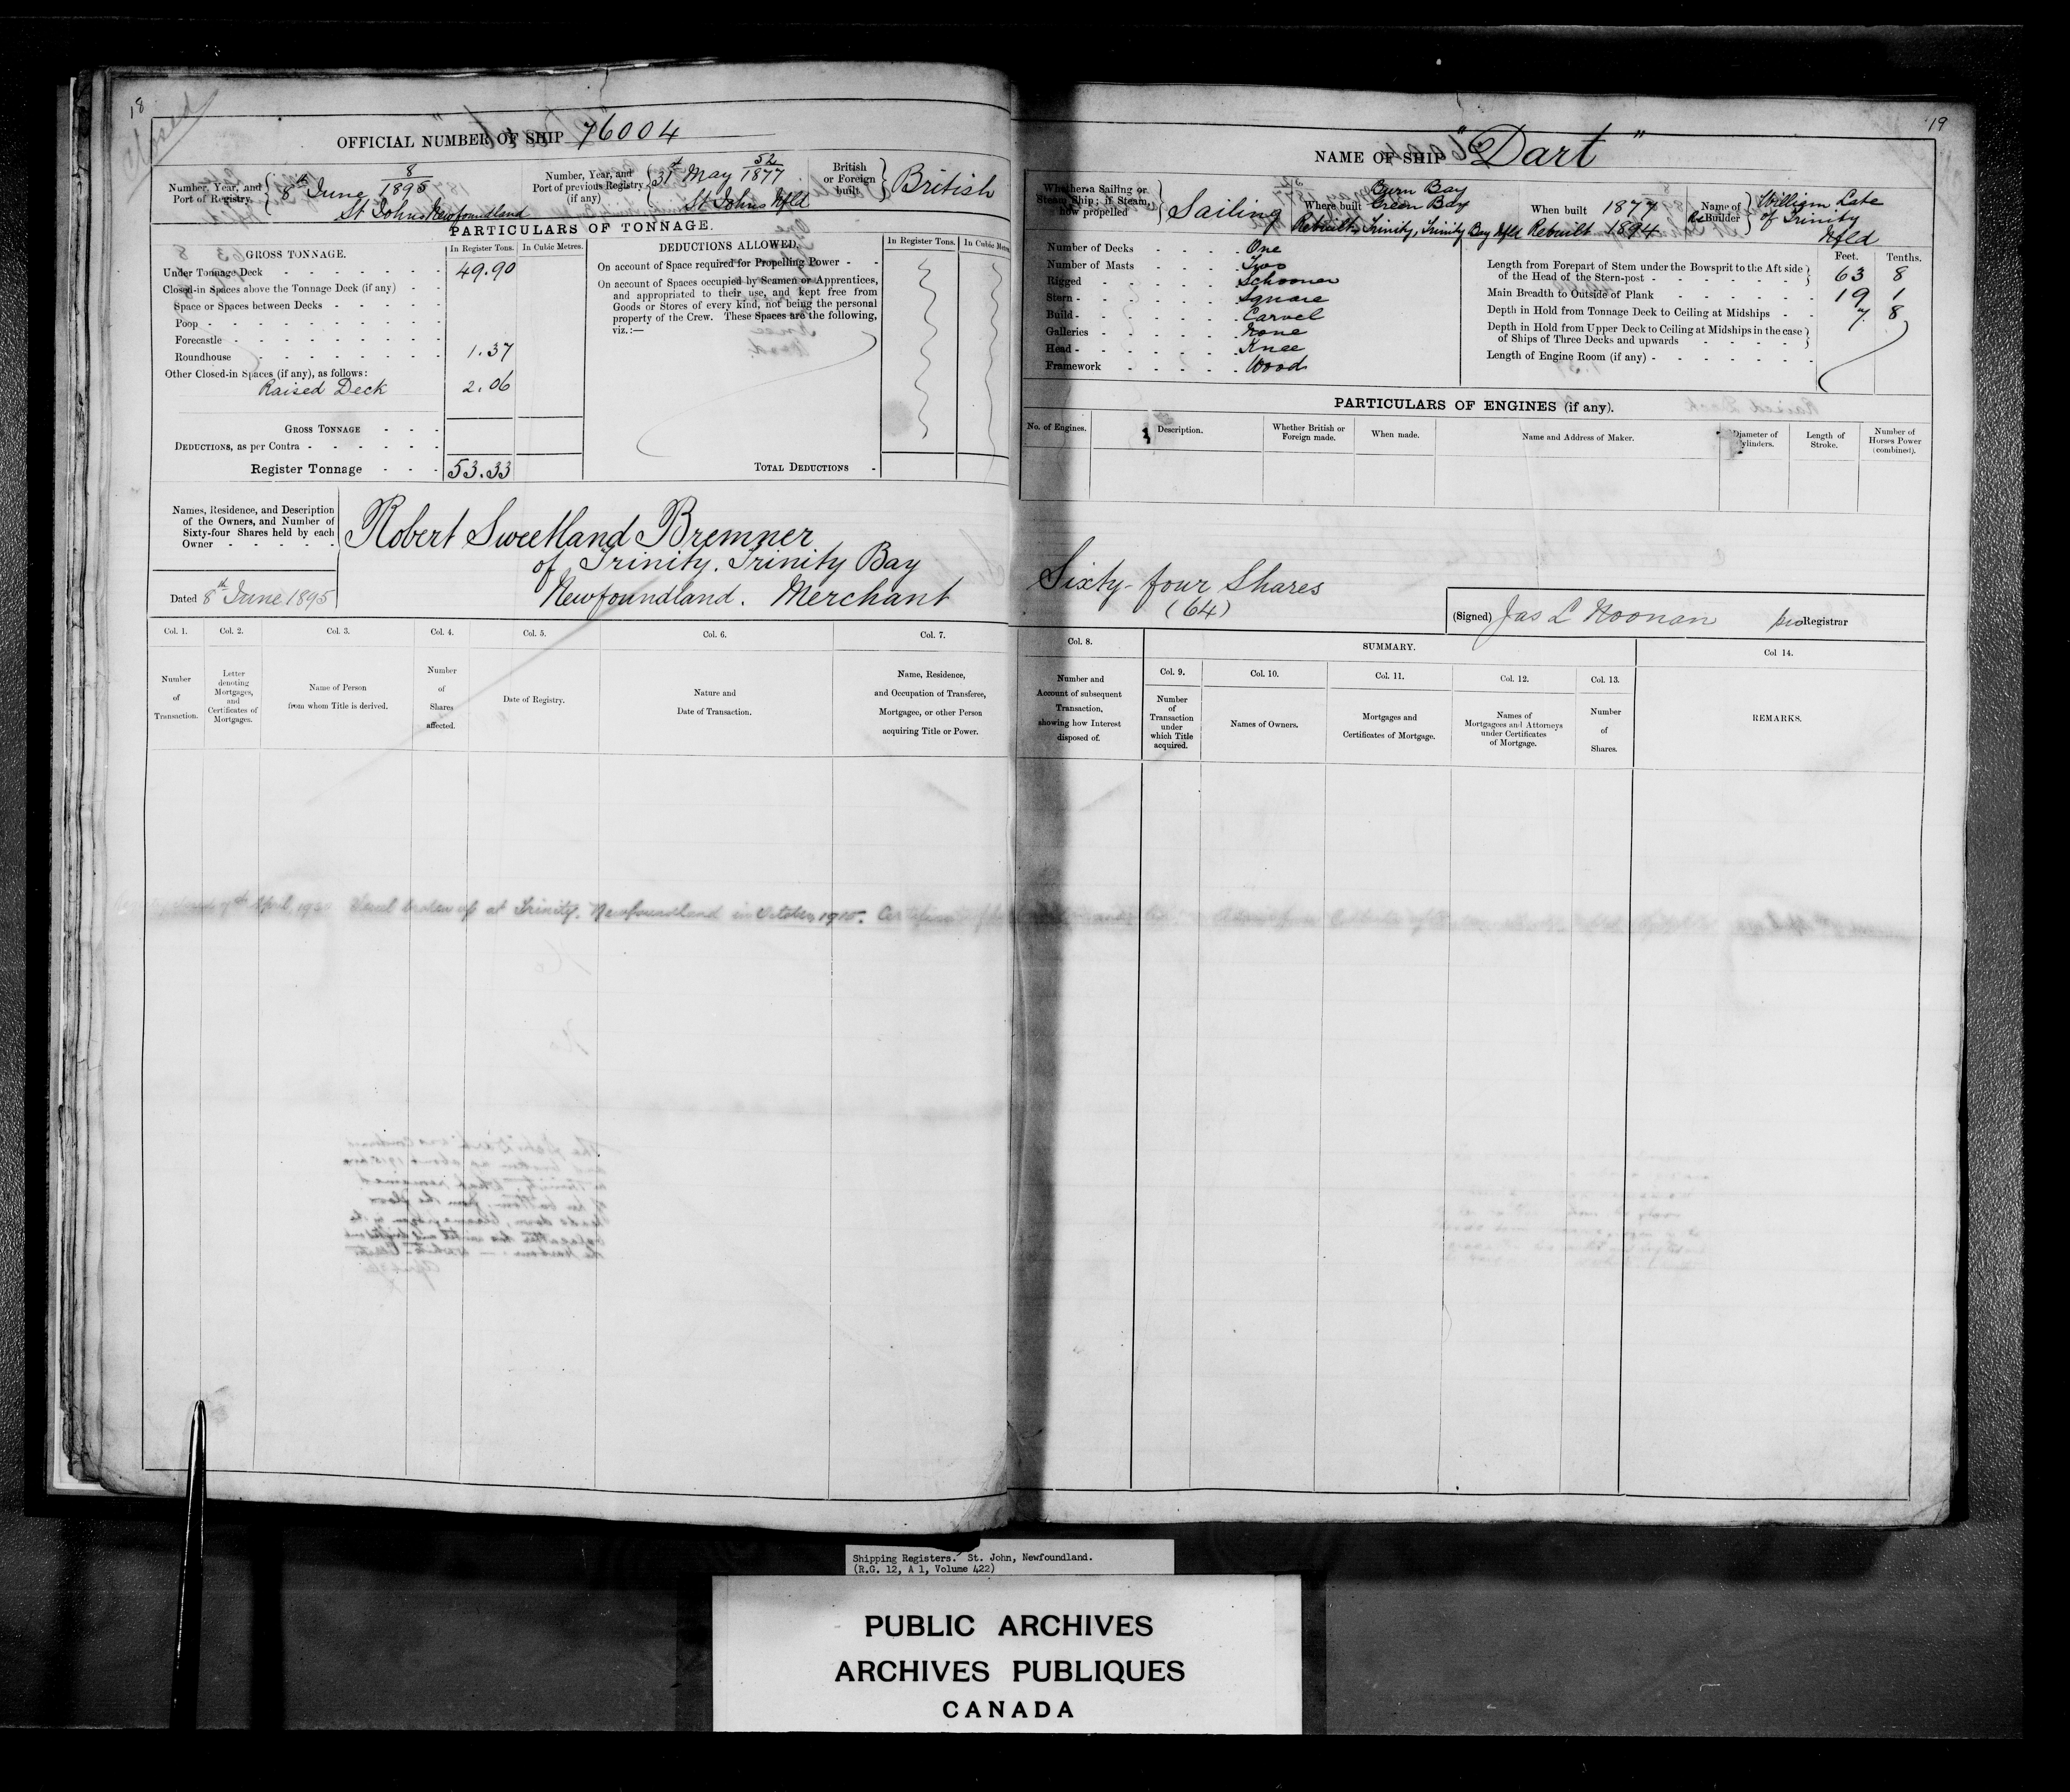 18
Closed
OFFICIAL NUMBER OF SHIP 76004
Number, Year, and Port of Registry. 8th June 8/1895 St Johns Newfoundland
Number, Year, and Port of previous Registry (if any) 31st May 52/1877 St Johns Nfld
British or Foreign built. British
PARTICULARS OF TONNAGE.
GROSS TONNAGE. In Register Tons. In Cubic Metres.
Under Tonnage Deck 49.90
Closed-in Spaces above the Tonnage Deck (if any)
Space or Spaces between Decks
Poop
Forecastle
Roundhouse 1.37
Other Closed-in Spaces (if any), as follows:
Raised Deck 2.06
GROSS TONNAGE
DEDUCTIONS, as per Contra
Register Tonnage 53.33
DEDUCTIONS ALLOWED. In Register Tons. In Cubic Metres
On account of Space required for Propelling Power
On account of Spaces occupied by Seamen or Apprentices,
and appropriated to their use, and kept free from
Goods or Stores of every kind, not being the personal
property of the Crew. These Spaces are the following,
viz.:—
TOTAL DEDUCTIONS
Names, Residence, and Description
of the Owners, and Number of
Sixty-four Shares held by each
Owner
Robert Sweetland Bremner
of Trinity. Trinity Bay
Newfoundland. Merchant
Dated 8th June 1895
Col. 1. Number of Transaction.
Col. 2. Letter denoting Mortgages, and Certificates of Mortgages.
Col. 3. Name of Person from whom Title is derived.
Col. 4. Number of Shares affected.
Col. 5. Date of Registry.
Col. 6. Nature and Date of Transaction.
Col. 7. Name, Residence, and Occupation of Transferee, Mortgagee, or other Person acquiring Title or Power.
7th April Vessel broken up at Trinity. Newfoundland in October 1915.
19
NAME OF SHIP "Dart"
Whether a Sailing or Steam Ship; if Steam, how propelled Sailing
Where built Burn Bay Green Bay
Rebuilt Trinity, Trinity Bay Nfld
When built 1877
Rebuilt 1894
Name of ReBuilder William Late of Trinity Nfld
Number of Decks One
Number of Masts Two
Rigged Schooner
Stern Square
Build Carvel
Galleries None
Head Knee
Framework Wood
Feet. Tenths.
Length from Forepart of Stem under the Bowsprit to the Aft side
of the Head of the Stern-post 63 8
Main Breadth to Outside of Plank 19 1
Depth in Hold from Tonnage Deck to Ceiling at Midships 7. 8
Depth in Hold from Upper Deck to Ceiling at Midships in the case
of Ships of Three Decks and upwards
Length of Engine Room (if any)
PARTICULARS OF ENGINES (if any).
No. of Engines. Description. Whether British or Foreign made. When made. Name and Address of Maker. Diameter of Cylinders. Length of Stroke. Number of Horses Power (combined).
Sixty-four Shares
(64)
(Signed) Jas L Noonan pro Registrar
Col. 8. Number and Account of subsequent Transaction, showing how Interest disposed of.
SUMMARY.
Col. 9. Number of Transaction under which Title acquired.
Col. 10. Names of Owners.
Col. 11. Mortgages and Certificates of Mortgage.
Col. 12. Names of Mortgagees and Attorneys under Certificates of Mortgage.
Col. 13. Number of Shares.
Col 14. REMARKS.
Shipping Registers. St. John, Newfoundland.
(R.G. 12, A 1, Volume 422)
PUBLIC ARCHIVES
ARCHIVES PUBLIQUES
CANADA